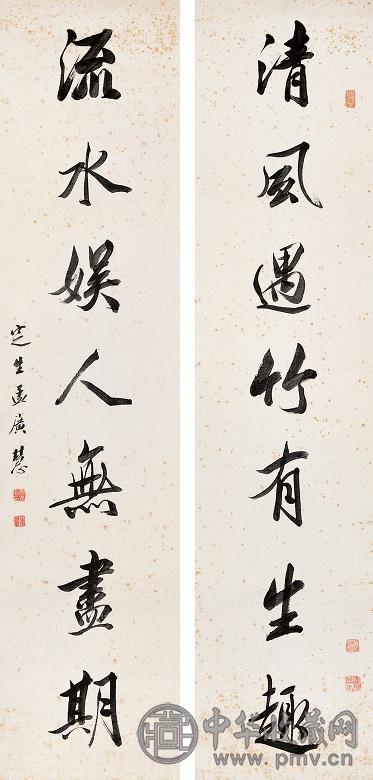 清風遇竹有生趣
流水娛人無盡期
定生孟廣慧
中华收藏网
www.pmv.cn